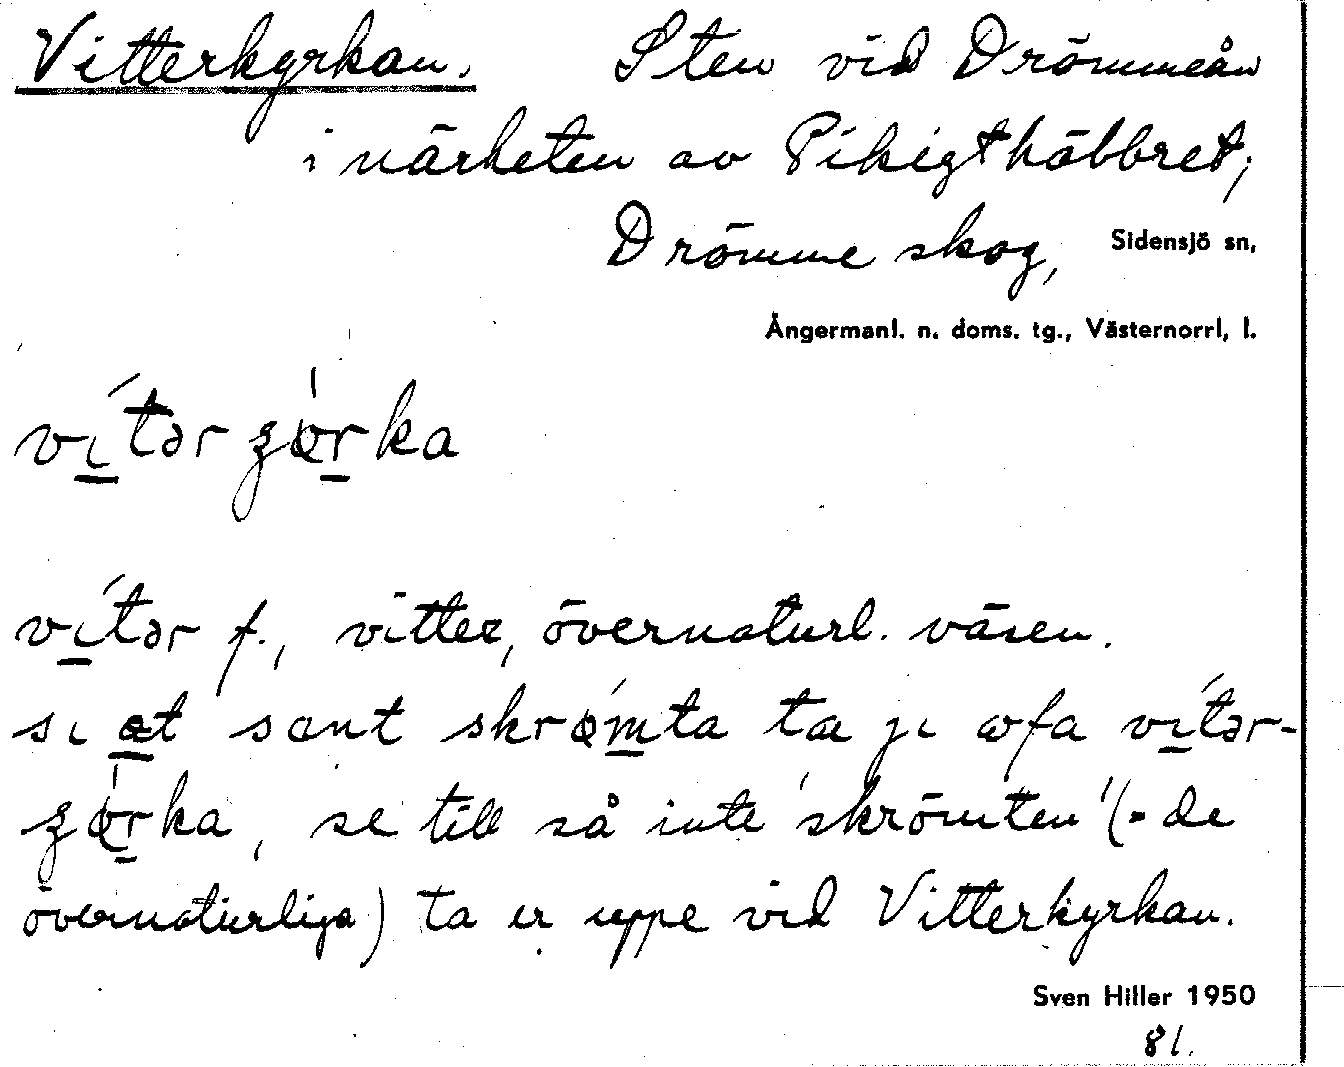 Vitterkyrkan. Sten vid Drömmeån
i närheten av Pikigthäbbret,
Drömme skog, Sidensjö sn,
Ångermanl. n. doms. tg., Västernorrl, l.
vítər ʒø̀rka
vítər f., vitter, övernaturl. väsen.
sı æt sɑnt skrǿmta ta jı ωfa vítər-
ʒø̀rka, se till så inte 'skrömten' (= de
övernaturliga) ta er uppe vid Vitterkyrkan.
Sven Hiller 1950
81.